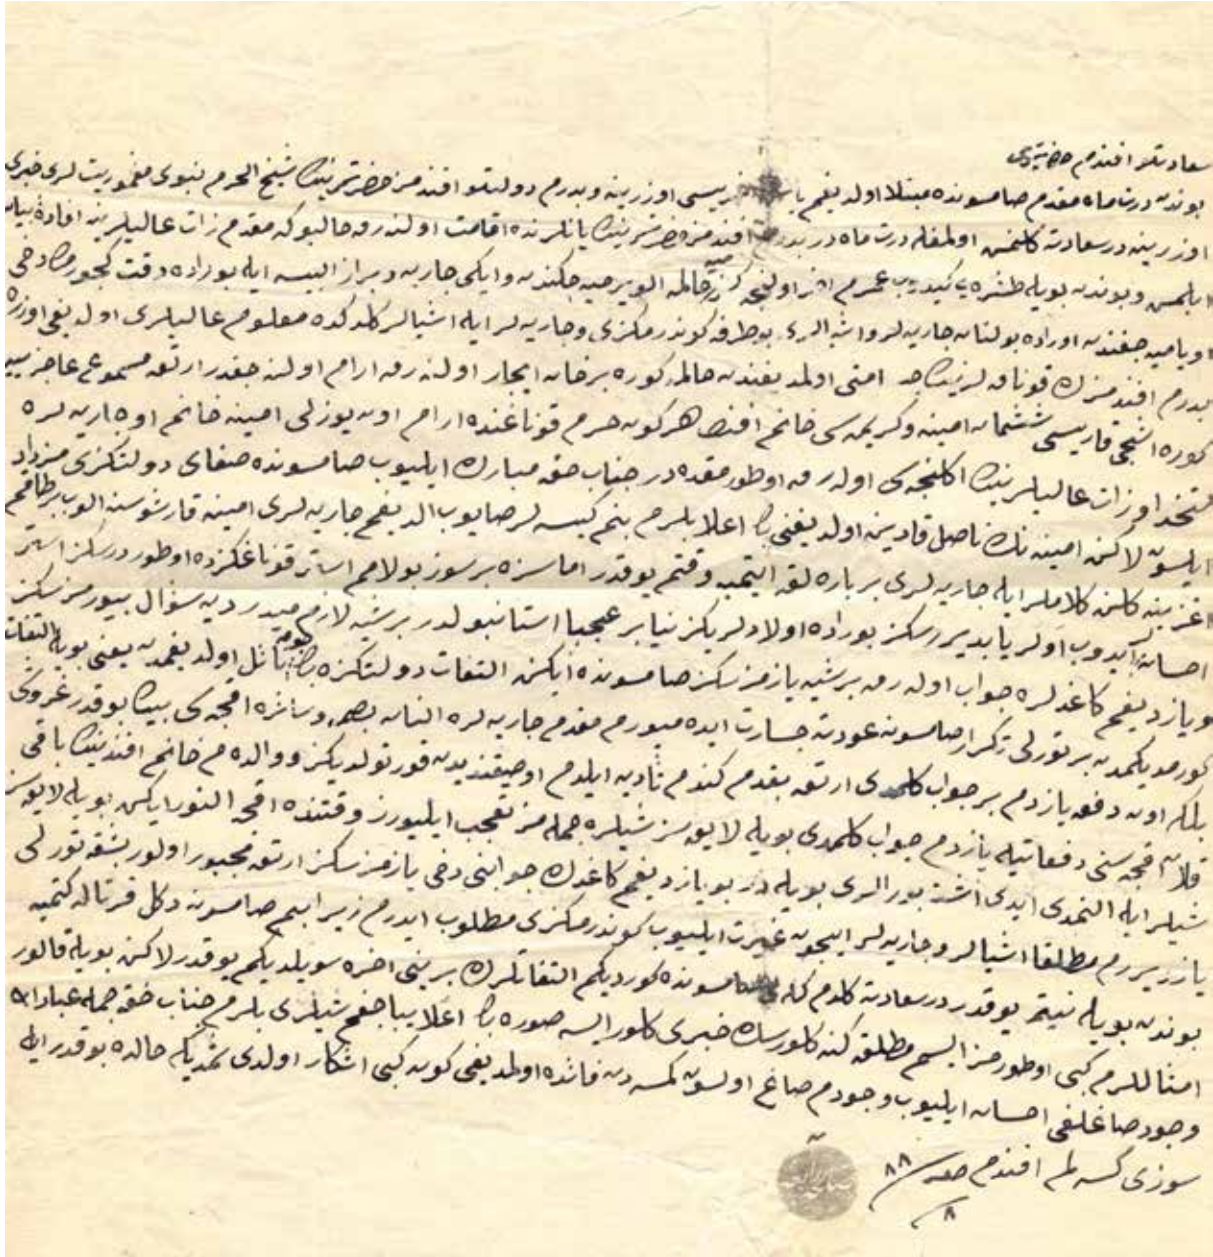 سعادتلو افندم حضرتلری
بوندن درت ماه مقدم صامسونده مبتلا اولدیغم اوزرینه و پدرم دولتلو افندمز حضرتلرینك شیخ الحرم نبوی مأموریت لری خبری
اوزرینه درسعادته كلمش اولمغله درت ماه در پدرم افندمز حضرتلرینك یانلرنده اقامت اولنه رق حالبوكه مقدم ذات عالیلرینه افاده بیان
ایلمش و بوندن بویله طشره یه كیدوب عمرم اولنجه حالمه الویرمیه جكندن و ایكی جاریه و براز البسه ایله بوراده دقت
اوراده بولنان جاریه لر و اشیالری بو طرفه كوندرمكزی و جاریه لر ایله اشیالر كلدكده معلوم عالیلری اولدیغی اوزره
پدرم افندمزك قوناقلرینك اولمدیغندن حالمه كوره بر خانه ایجار اولنه رق ارام اولنه جقدر ارتق مسموع عاجزیمه
كوره قاریسی امینه و كریمه سی خانم هر كون حرم قوناغنده ارام اون یوزلی امینه خانم او جاریه لره
ذات عالیلرینك اكلنجه سی اوله رق اوطورمقده در جناب حق مبارك ایلیوب صامسونده صفای دولتكزی مزداد
ایلسون لاكن امینه نك ناصل قادین اولدیغنی پك اعلا بلرم بنم كیسه لر صایوب الدیغم جاریه لری امینه قارشوسنه الوب بر طاقم
اغزینه كلن كلاملر ایله جاریه لری بر پاره لق ایتمیه وقتم یوقدر اما سزه بر سوز بولامم استر قوناغكزده اوطور درسكز استر
احسان ایدوب اولر یاپدیررسكز بوراده اولادلریكز عجبا استانبولدر بر شیئه لازم میدر دیه سؤال بیورمزسكز
و یازدیغم كاغدلره جواب اوله رق بر شیئه یازمزسكز صامسونده ایكن التفات دولتكزه پك نائل اولدیغمدن یعنی بویله التفات
كورمدیكمدن بر تورلی تكرار صامسونه عودته جسارت ایده میورم مقدم جاریه لره النان و سائره اقچه سی بیك بوقدر غروشی
بلكه اون دفعه یازدم بر جواب كلمدی ارتق بقدم كندم تأدیه ایلدم او صیقندیدن قورتولدیكز و والده م خانم افندینك باقی
قلان اقچه سنی دفعاتیله یازدم جواب كلمدی بویله لایقسز شیلره جمله مز تعجب ایلیورز وقتنده اقچه النور ایكن بویله لایقسز
شیلر ایله النمدی ایدی اشته بورالری بویله در بو یازدیغم كاغدك جوابنی دخی یازمزسكز ارتق مجبور اولور بشقه تورلی
یازدیررم مطلقا اشیالر و جاریه لر ایچون غیرت ایلیوب كوندرمكزی مطلوب ایدرم زیرا بنم صامسونه دكل قرتاله كتمیه
بوندن بویله نیتم یوقدر درسعادته كلدم كله لی صامسونده كوردیكم التفاتلرك برینی اخره سویلدیكم یوقدر لاكن بویله قالور
امثاللرم كبی اوطورمز ایسم مطلق كنه كلورسك خبری كلور ایسه صوره پك اعلا یپاجغم شیلری بلرم جناب حق جمله عبادینه
وجود صاغلغی احسان ایلیوب وجودم صاغ اولسون كمسه دن فائده اولمدیغی كون كبی اشكار اولدی شمدیكی حالده بوقدر ایله
سوزی كسه لم افندم ٨٨
٨